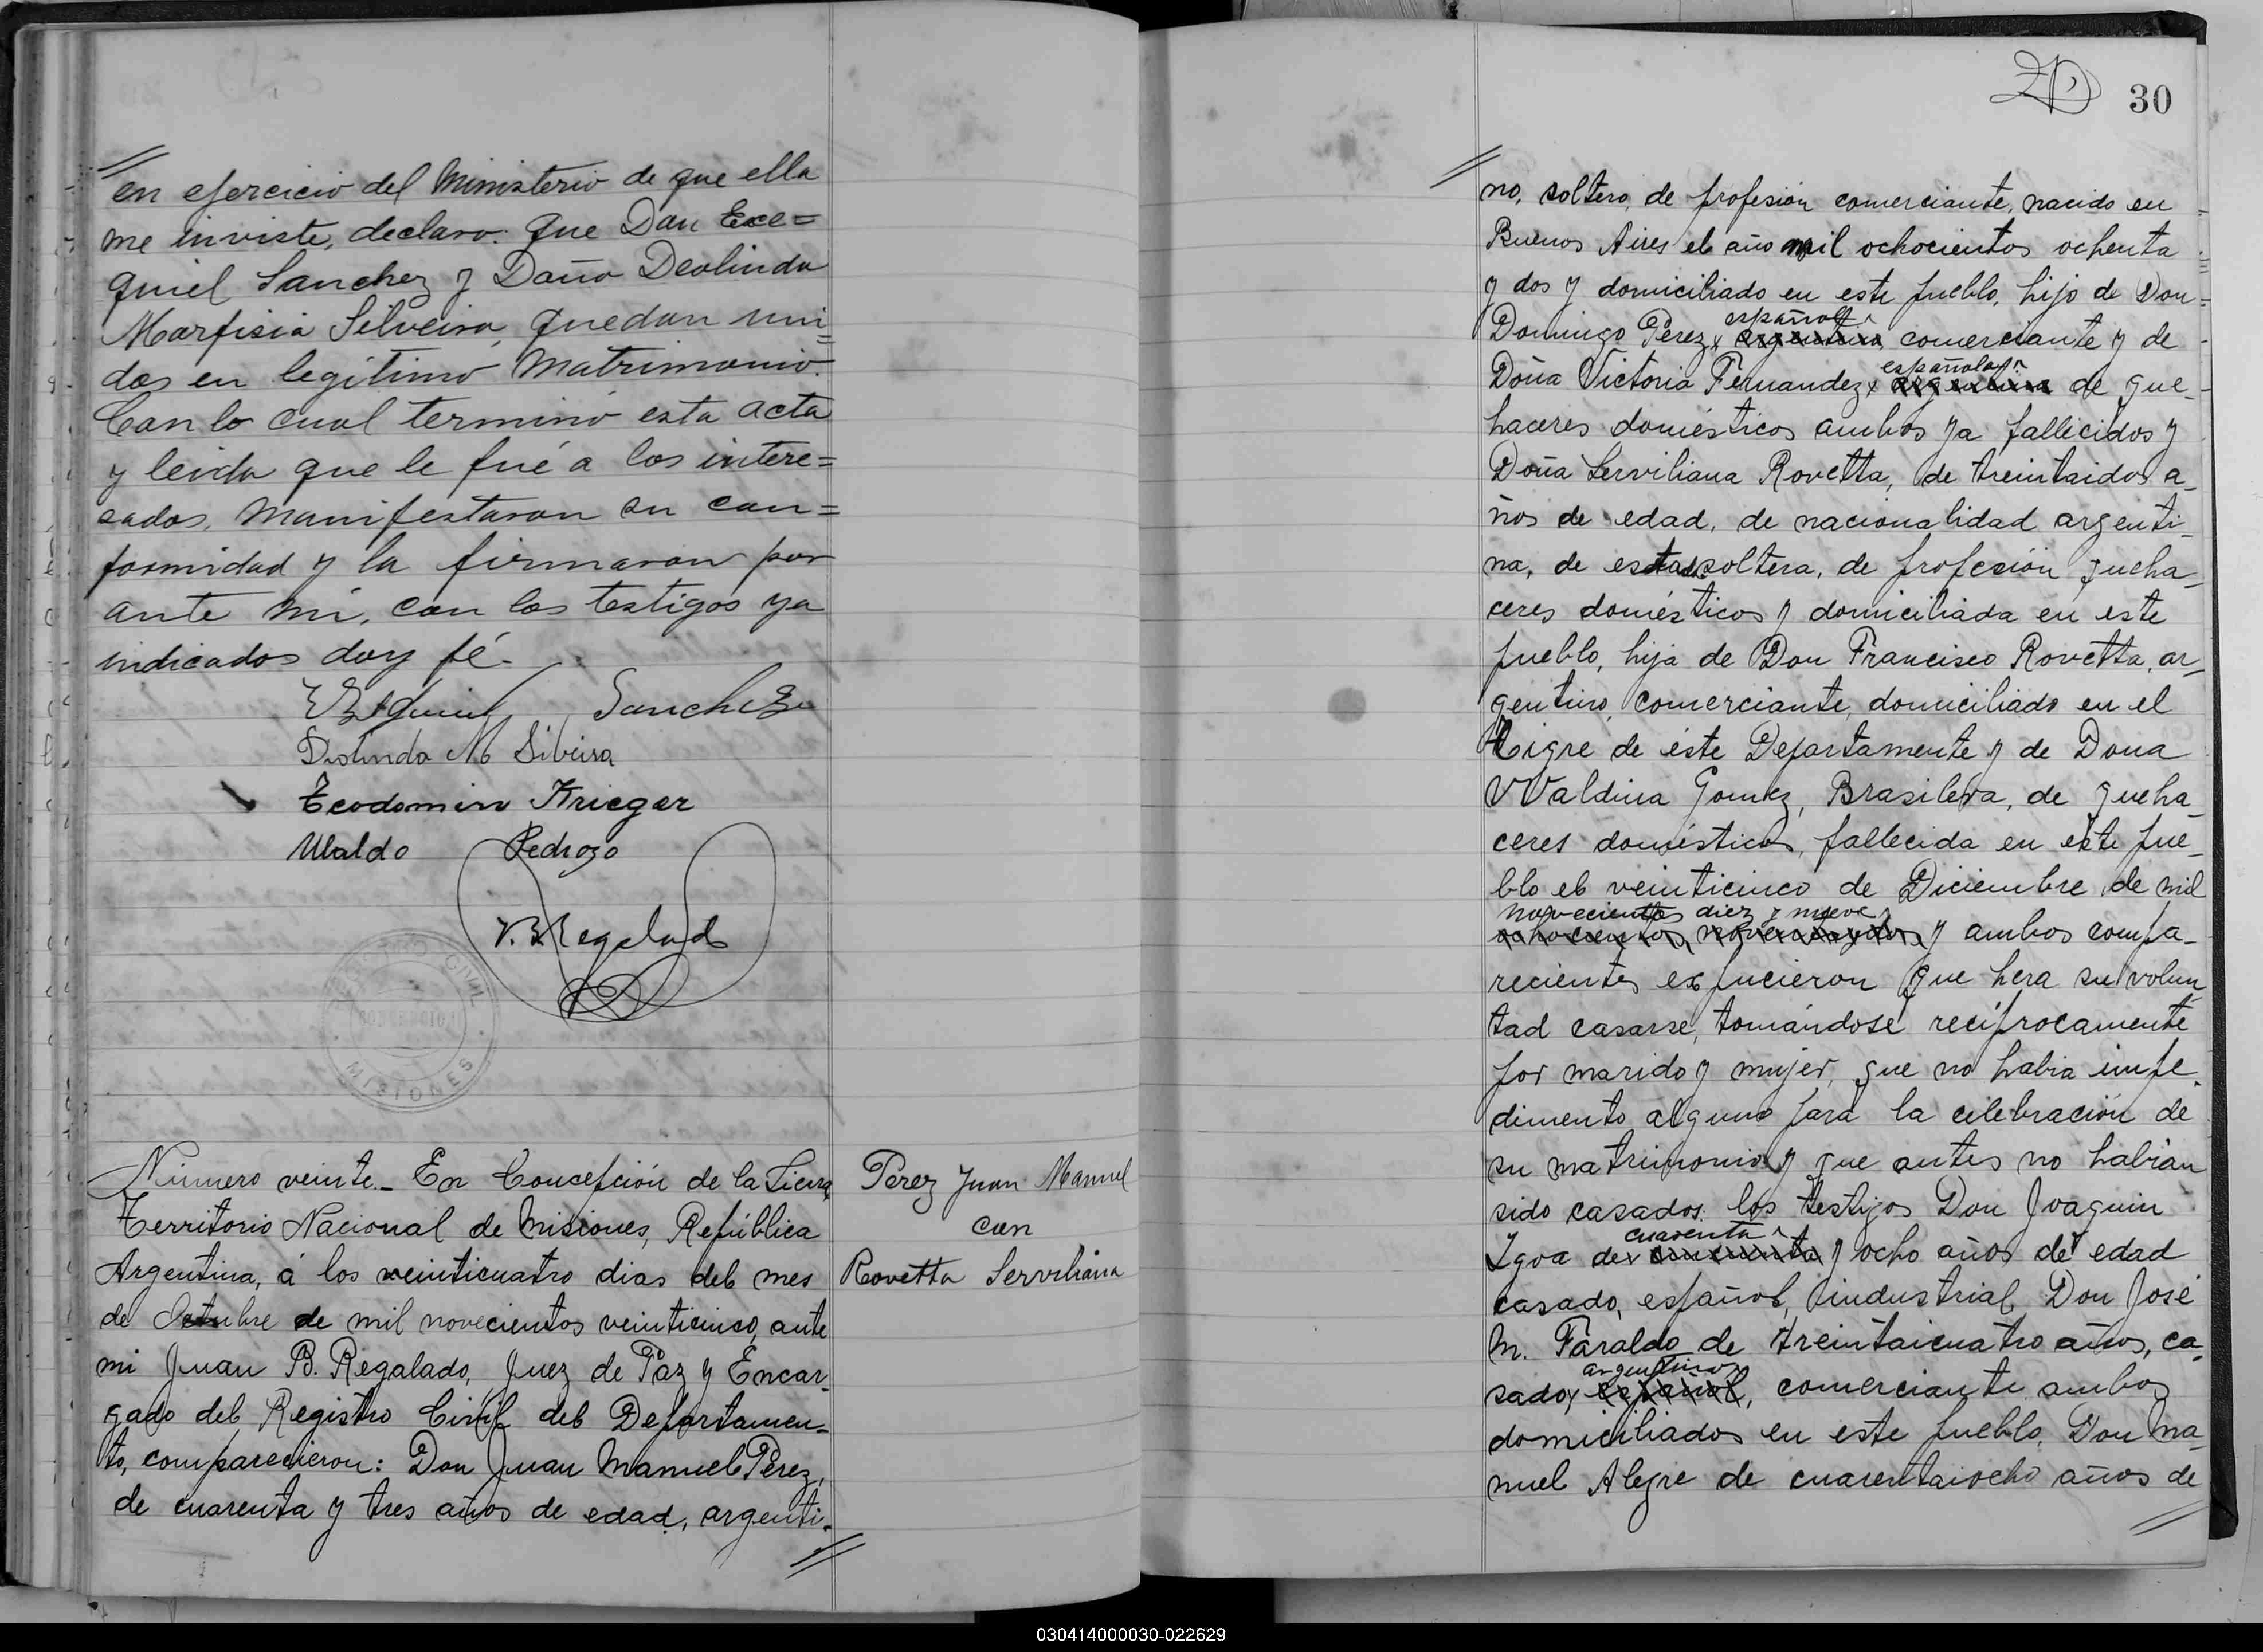 en ejercicio del Ministerio de que ella
me inviste, declaro: que Don Exe=
quiel Sanchez y Doña Deolinda
Marfisia Silveira, quedan uni=
dos en legítimo Matrimonio.
Con lo cual terminó esta acta
y leida que le fué a los intere=
sados, manifestaron su con=
formidad y la firmaron por
ante mi, con los testigos ya
indicados doy fé.-
Sanchez
Diolinda M Silveira
Teodomiro Krieger
Ubaldo Pedrozo
J. B. Regalado
REGISTRO CIVIL
CONCEPCION
MISIONES
Número veinte_ En Concepción de la Sierra
Territorio Nacional de Misiones, República
Argentina, á los veinticuatro dias del mes
de Octubre de mil novecientos veinticinco, ante
mi Juan B. Regalado, Juez de Paz y Encar_
gado del Registro Civil del Departamen_
to, comparecieron: Don Juan Manuel Pérez,
de cuarenta y tres años de edad, argenti_
Pérez Juan Manuel
con
Rovetta Serviliana
20 30
no, soltero, de profesión comerciante, nacido en
Buenos Aires el año mil ochocientos ochenta
y dos y domiciliado en este pueblo, hijo de Don=
español
Domingo Pérez, argentino, comerciante y de
española
Doña Victoria Fernandez, argentina de que_
haceres domésticos ambos ya fallecidos y
Doña Serviliana Rovetta, de treintaidos a_
ños de edad, de nacionalidad argenti_
na, de estado soltera, de profesión queha_
ceres domésticos y domiciliada en este
pueblo, hija de Don Francisco Rovetta, ar_
gentino, comerciante, domiciliado en el
Tigre de éste Departamente y de Dona
WValdina Gomez, Brasilera, de queha_
ceres domésticos, fallecida en este pue_
blo el veinticinco de Diciembre de mil
novecientos diez y nueve
ochocientos noventaydos y ambos compa_
recientes expucieron que hera su volun
tad casarse, tomándose recíprocamente
por marido y mujer, que no habia impe_
dimento alguno para la celebración de
su matrimonio y que antes no habian
sido casados. los testigos Don Joaquin
cuarenta
Igoa de cincuenta y ocho años de edad
casado, español, industrial, Don José
M. Faraldo de treintaicuatro años, ca_
argentino
sado, español, comerciante ambos
domiciliados en este pueblo, Don Ma_
nuel Alegre de cuarentaiocho años de
030414000030-022629